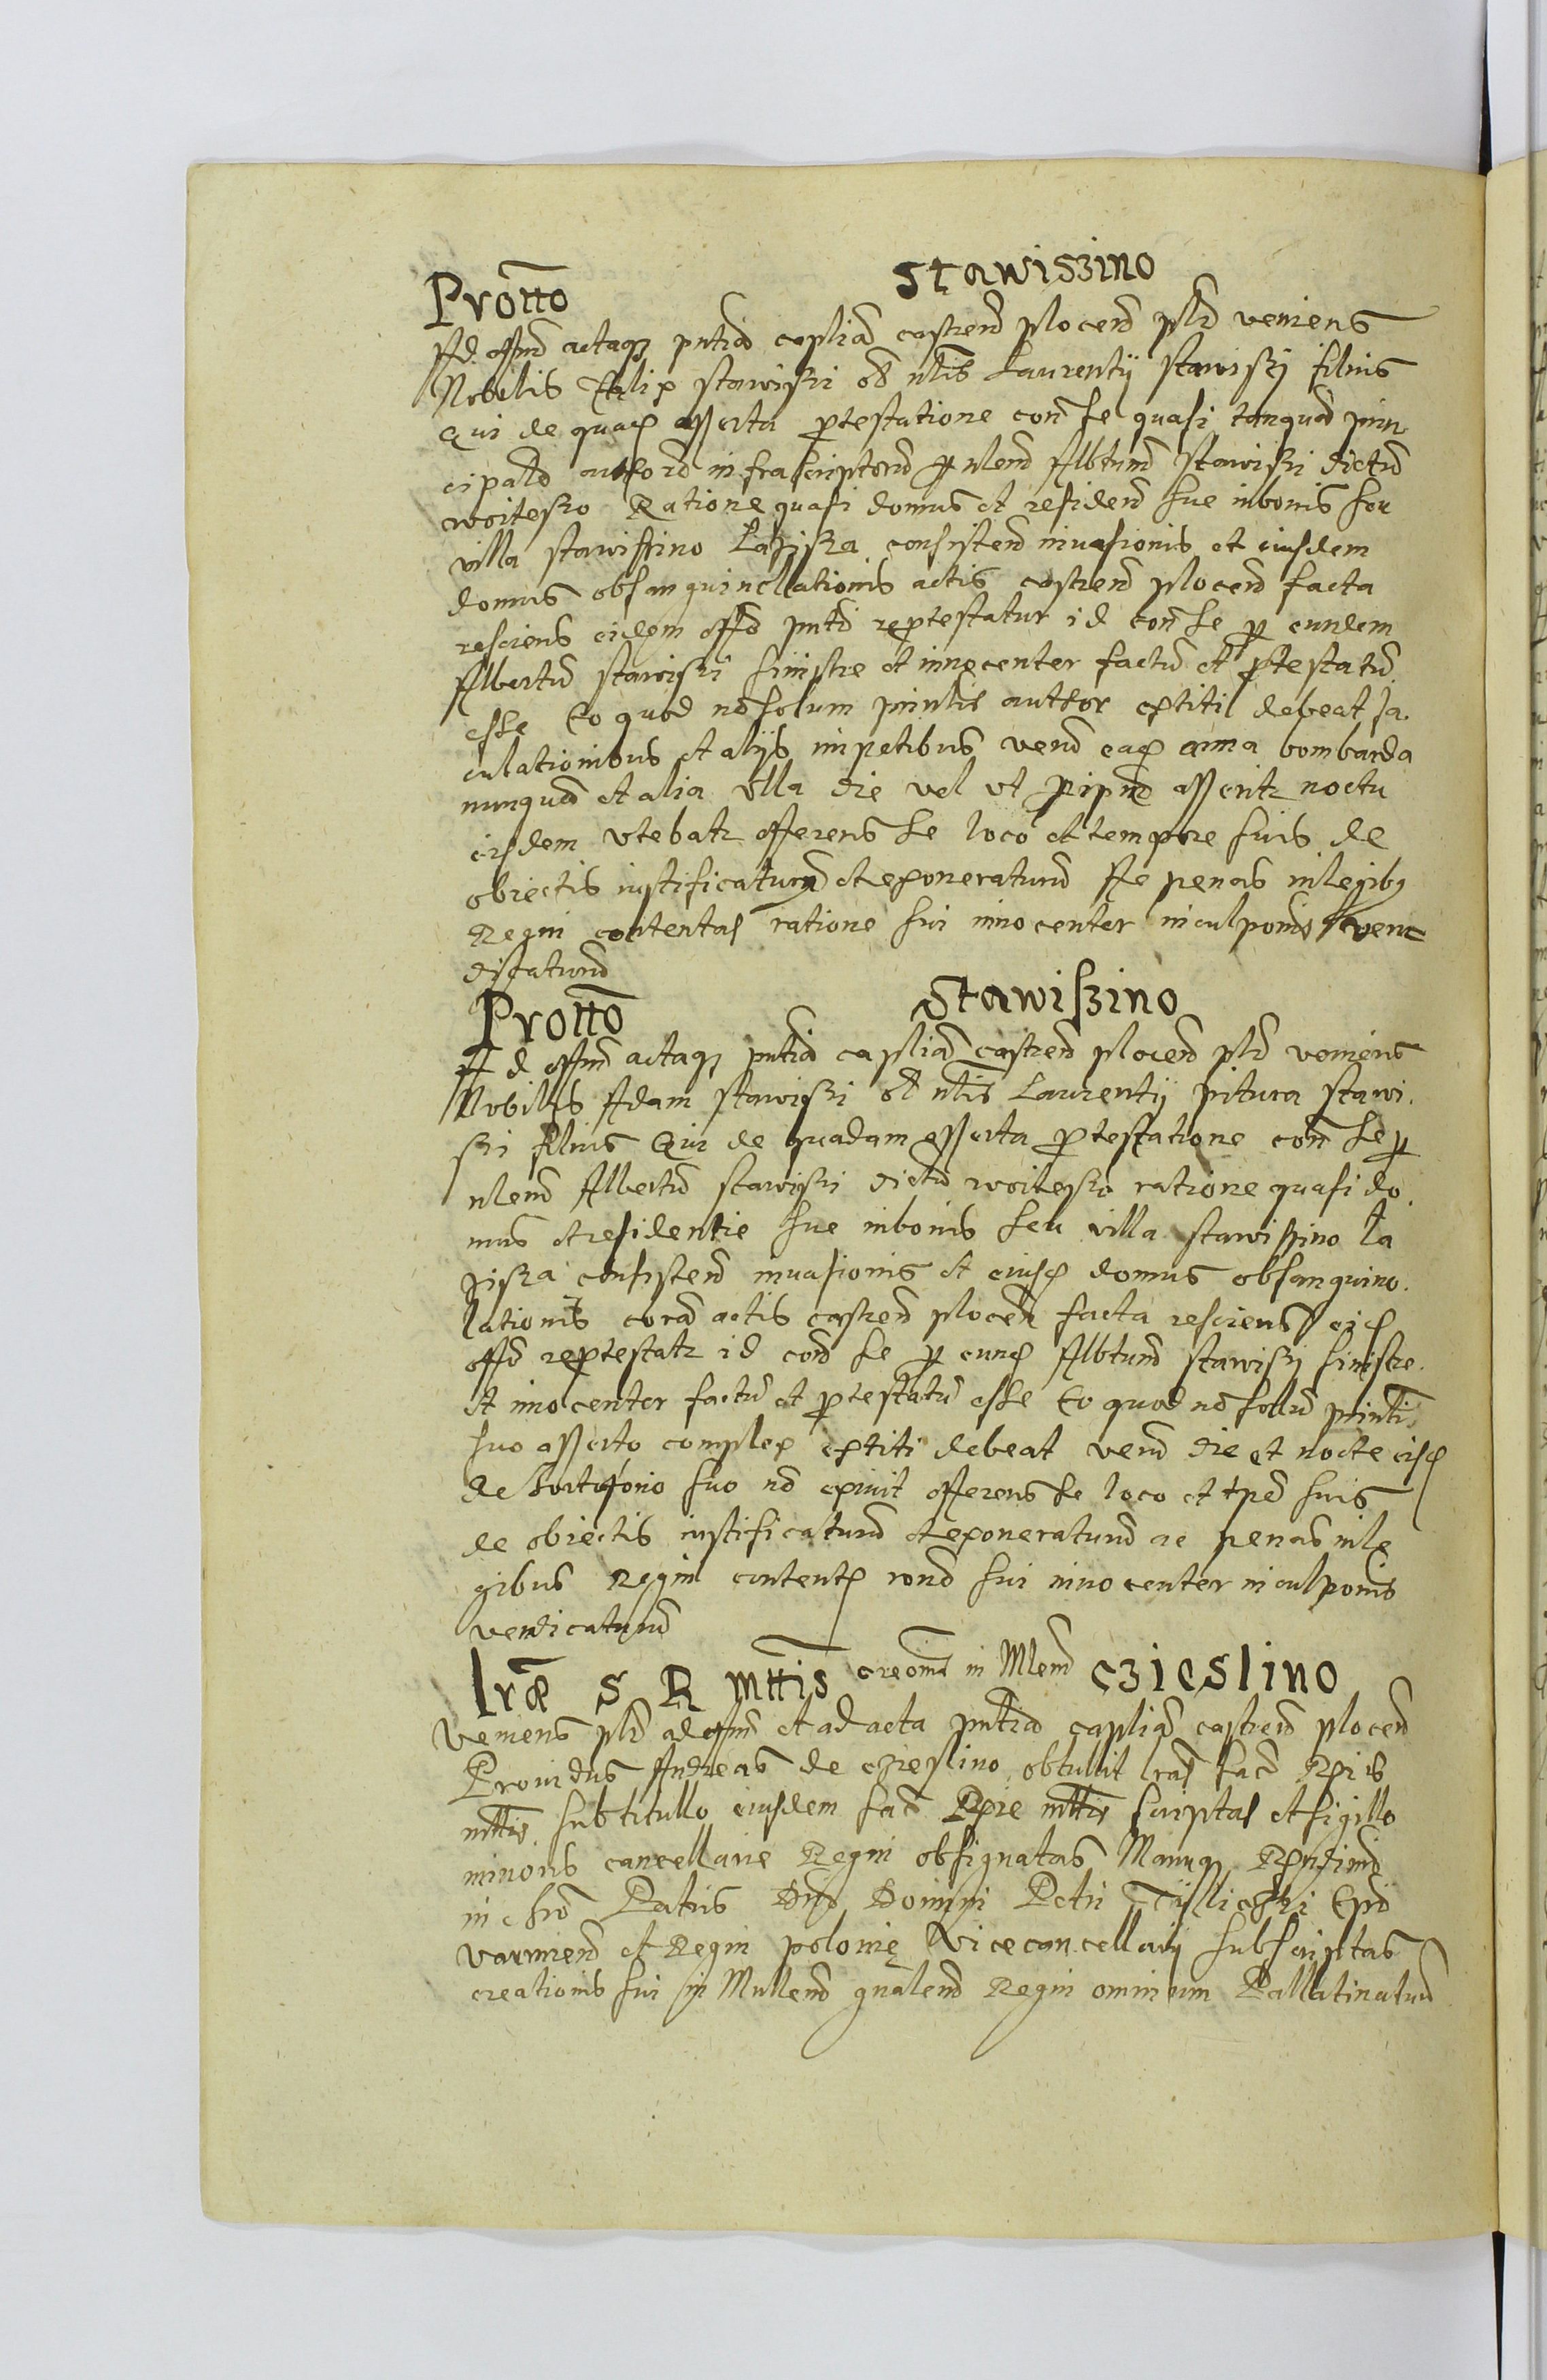 Protto Stawiszino
Ad offm actaq pntia caplia castren plocen plr veniens
Nobilis Felix stawiski olim nlis Laurentij stawiski filius
Qui de quad asserta protestatione con se quasi tanquam prin
cipale authore infrascripten per nlem Albtum stawiski dictu
woitesko Ratione quasi domus et residen sue in bonis seu
villa stawissino Laziska consisten invasionis et eiusdem
domus actis castren plocen facta
resciens eidem offo pnti reprotestatur id con se per eundem
Albertu stawiski sinistre et innocenter factu et protestatu
esse Eo quod no solum prinlis author extiti debeat Ja
culationibus et alijs impetibus veru arma bombarda
nunquam et alia ulla die vel ut asseritr noctu
eisdem utebatr offerens se loco et tempore suis de
obiectis iustificaturu et exoneraturu Ac penas in legibq
Regni contentas ratione sui innocenter inculponis
dicaturu
Protto Stawiszino
Ad offm actaq pntia caplia castren plocen plr veniens
Nobilis Adam stawiski olim nlis Laurentij pitura stawi
ski filius Qui de quadam asserta protestatione con se per
nlem Albertu stawiski dictu woitesko ratione quasi do
mus et residentie sue in bonis seu villa stawiszino La
ziska consisten invasionis et eiusd domus obsanguino
lationis cora actis castren plocen facta resciens eid
offo reprotestatr id con se per eund Albtum stawiski sinistre
et innocenter factu et protestatu esse Eo quod no sollu prinli
suo asserto complex extiti debeat veru die et nocte eisd
de suo no exivit offerens se loco et tpre suis
de obiectis iustificaturu et exoneraturu ac penas in le
gibus Regni content rone sui innocenter inculponis
vendicaturu
lrae S R mttis creonis in Mlem czieslino
veniens plr ad offm et ad acta pntia caplia castren plocen
Providus Andreas de czieslino obtullit lras sac Rgis
mttis sub titullo eiusdem sac Rgie mttis scriptas et sigillo
minoris cancellarie Regni obsignatas Manuq Rndimi
in chro Patris Dni Domini Petri Tÿliczki Epi
varmien et Regni polonię vicecancellarij subscriptas
creationis sui in Mullem gnalem Regni omnium Pallatinatuu